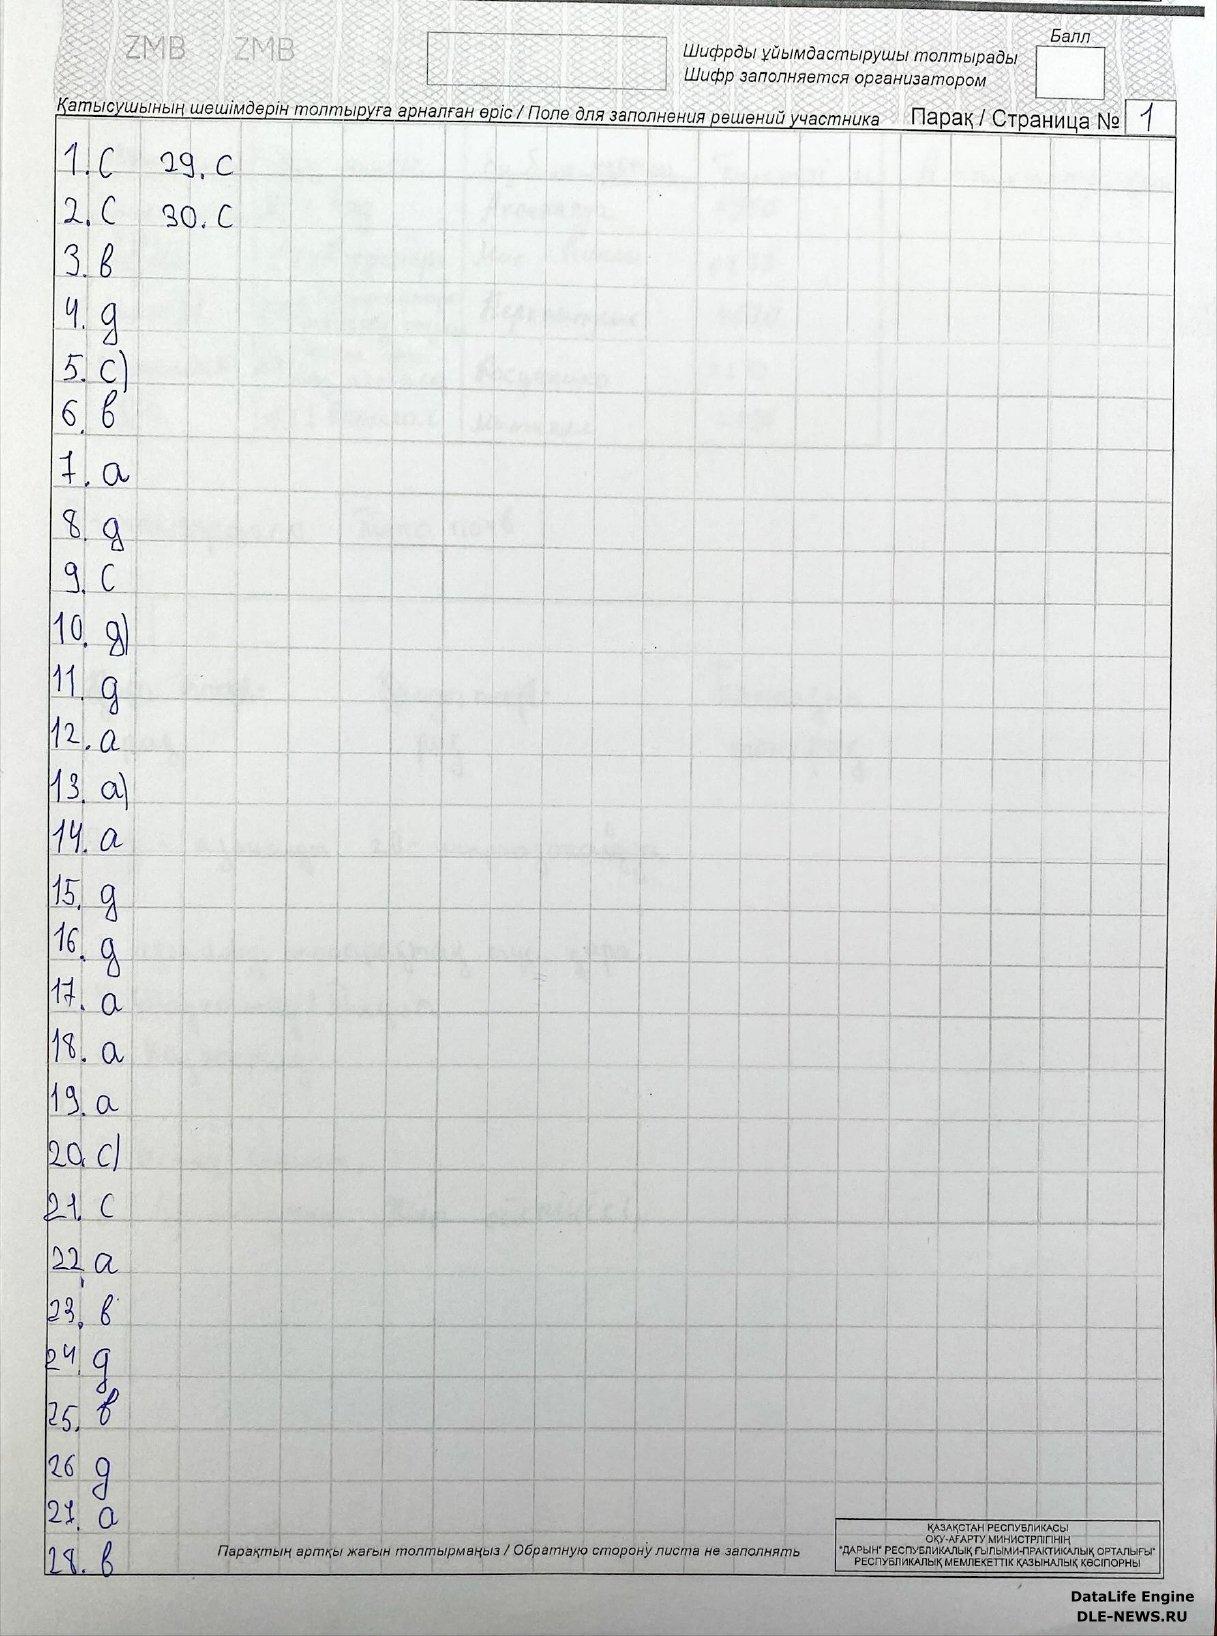 ZMB ZMB
Балл
Шифрды ұйымдастырушы толтырады
Шифр заполняется организатором
Қатысушының шешімдерін толтыруға арналған өріс / Поле для заполнения решений участника
Парақ / Страница № 1
1. с 29. с
2. с 30. с
3. в
4. д
5. с)
6. в
7. а
8. д
9. с
10. д)
11. д
12. а
13. а)
14. а
15. д
16. д
17. а
18. а
19. а
20. с)
21. с
22. а
23. в
24. д
25. в
26 д
27. а
28. в
Парақтың артқы жағын толтырмаңыз / Обратную сторону листа не заполнять
ҚАЗАҚСТАН РЕСПУБЛИКАСЫ
ОҚУ-АҒАРТУ МИНИСТРЛІГІНІҢ
"ДАРЫН" РЕСПУБЛИКАЛЫҚ ҒЫЛЫМИ-ПРАКТИКАЛЫҚ ОРТАЛЫҒЫ"
РЕСПУБЛИКАЛЫҚ МЕМЛЕКЕТТІК ҚАЗЫНАЛЫҚ КӘСІПОРНЫ
DataLife Engine
DLE-NEWS.RU